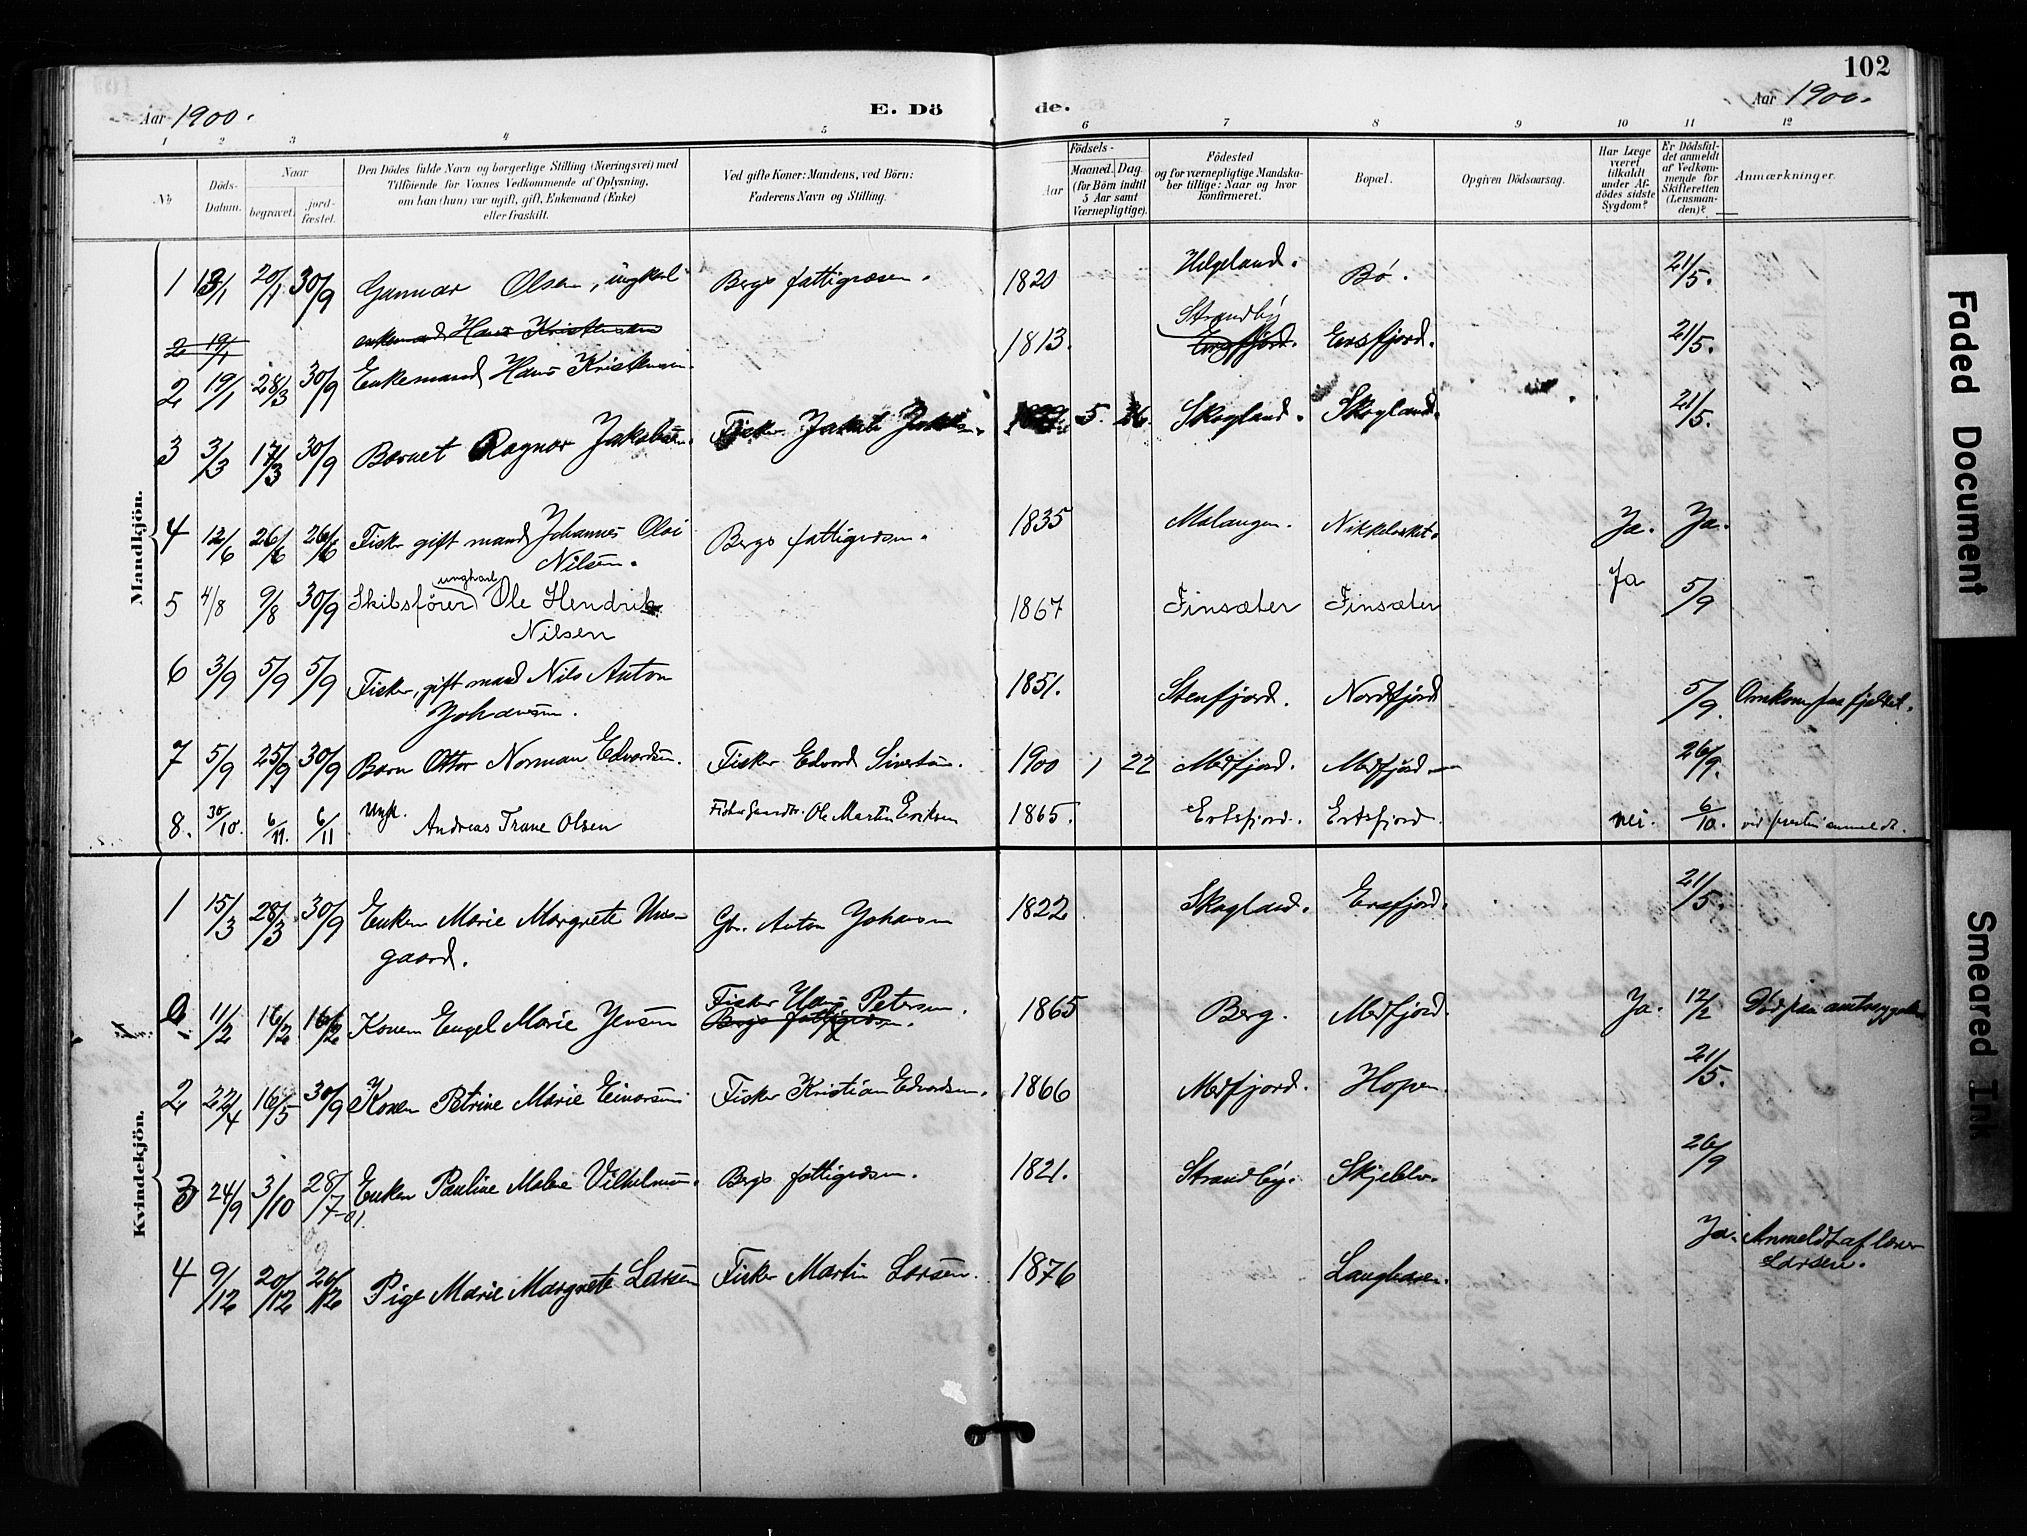 102
Aar 1900.
E. Dö
de.
Aar 1900.
1 2 3 4 5 6 7 8 9 10 11 12
No
Döds-
Datum.
Naar
begravet.
jord-
fæstet.
Den Dödes fulde Navn og borgerlige Stilling (Næringsvei) med
Tilföiende for Voxnes Vedkommende af Oplysning,
om han (hun) var ugift, gift, Enkemand (Enke)
eller fraskilt.
Ved gifte Koner: Mandens, ved Börn:
Faderens Navn og Stilling.
Födsels-
Aar
Maaned.
Dag.
(for Börn indtil
5 Aar samt
Værnepligtige).
Födested
og for værnepligtige Mandska-
ber tillige: Naar og hvor
konfirmeret.
Bopæl.
Opgiven Dödsaarsag.
Har Læge
været
tilkaldt
under Af-
dödes sidste
Sygdom?
Er Dödsfal-
det anmeldt
af Vedkom-
mende for
Skifteretten
(Lensman-
den)?
Anmærkninger.
Mandkjön.
1 13/1 20/1 30/9 Gunnar Olsen, ungkarl Bergs fattigvæsen. 1820 Helgeland. Bø. 21/5.
2 19/1 enkemand Hans Kristensen
Strandby
2 19/1 28/3 30/9 Enkemand Hans Kristensen. 1813. Ersfjord. Ersfjord. 21/5.
3 3/3 17/3 30/9 Barnet Ragnar Jakobsen. Fisker Jakob 5. 26. Skogland. Skogland. 21/5.
4 12/6 26/6 26/6 Fisker gift mand Johannes Olai Bergs fattigvæsen. 1835 Malangen. Nikkelverket. Ja. Ja.
Nilsen.
ungkarl
5 4/8 9/8 30/9 Skibsfører Ole Hendrik 1867 Finsæter Finsæter Ja 5/9
Nilsen
6 3/9 5/9 5/9 Fisker, gift mand Nils Anton 1851. Stenfjord. Nordfjord 5/9. Omkom paa fjeldet.
Johansen.
7 5/9 25/9 30/9 Barn Ottar Norman Edvardsen. Fisker Edvard Sivertsen. 1900 1 22 Medfjord. Medfjord. 26/9.
8. 30/10. 6/11. 6/11 Ungk. Andreas Trane Olsen Ole Martin Eriksen 1865. Ertsfjord. Ertsfjord. nei. 6/10. anmeldt.
Kvindekjön.
1 15/3 28/3 30/9 Enken Marie Margrete Uns- Gbr. Anton Johansen 1822 Skogland. Ersfjord. 21/5.
gaard.
Fisker Hans Petersen.
11/2 16/2 16/2 Konen Engel Marie Jensen Bergs fattigvæsen. 1865 Berg. Medfjord. Ja. 12/2 Død paa amtssygeh
2 22/4 16/5 30/9 Konen Petrine Marie Einarsen Fisker Kristian Edvardsen. 1866 Medfjord. Hopen. 21/5.
3 24/9 3/10 28/7-01. Enken Pauline Malene Vilhelmsen. Bergs fattigvæsen. 1821. Strandby. 26/9
4 9/12 20/12 20/12 Pige Marie Margrete Larsen Fisker Martin Larsen. 1876 Ja. Anmeldt af lærer
Larsen.
Faded Document
Smeared Ink